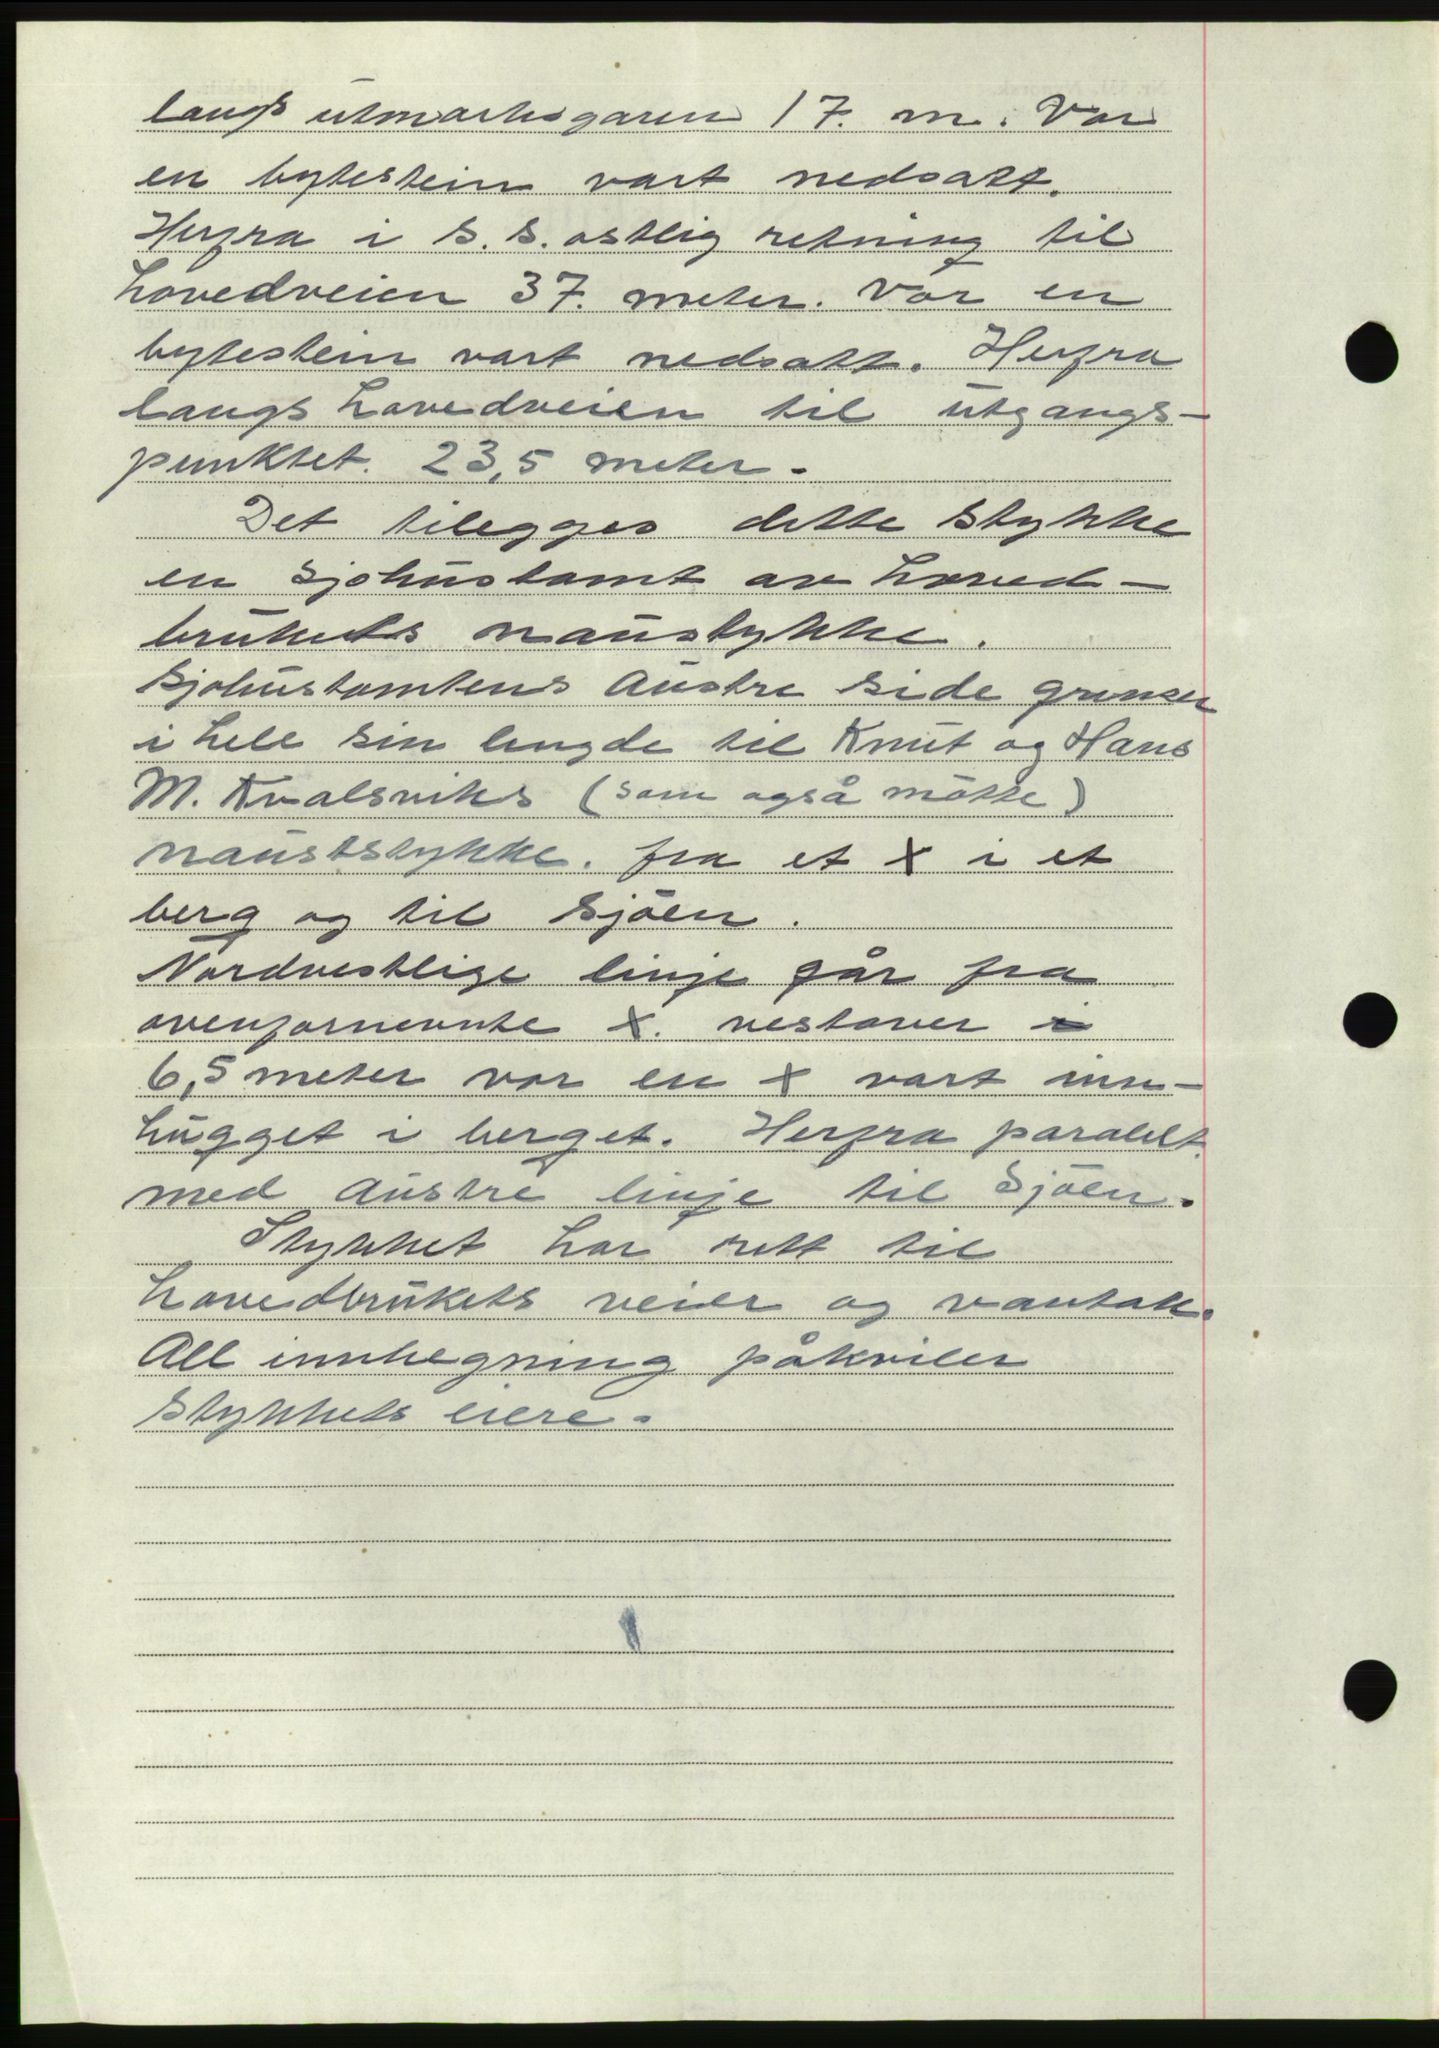 langs utmarksgaren 17. m. Vor
en bytestein vart nedsatt.
Herfra i S. S. ostlig retning til
hovedveien 37. meter. Vor en
bytestein vart nedsatt. Herfra
langs hovedveien til utgangs-
punktet. 23,5 meter.
Det tilegges dette stykke
en sjohustomt av hoved-
brukets naustykke.
Sjohustomtens Austre side grenser
i hele sin lengde til Knut og Hans
M. Kvalsviks (som også mötte)
nauststykke. fra et X i et
berg og til Sjöen.
Nordvestlige linje går fra
ovenfornevnte X. vestover
6,5 meter vor en X vart inn-
hugget i berget. Herfra paralelt
med Austre linje til Sjöen.
Stykket har rett til
hovedbrukets veier og vantak.
All innhegning påkviler
stykkets eiere.